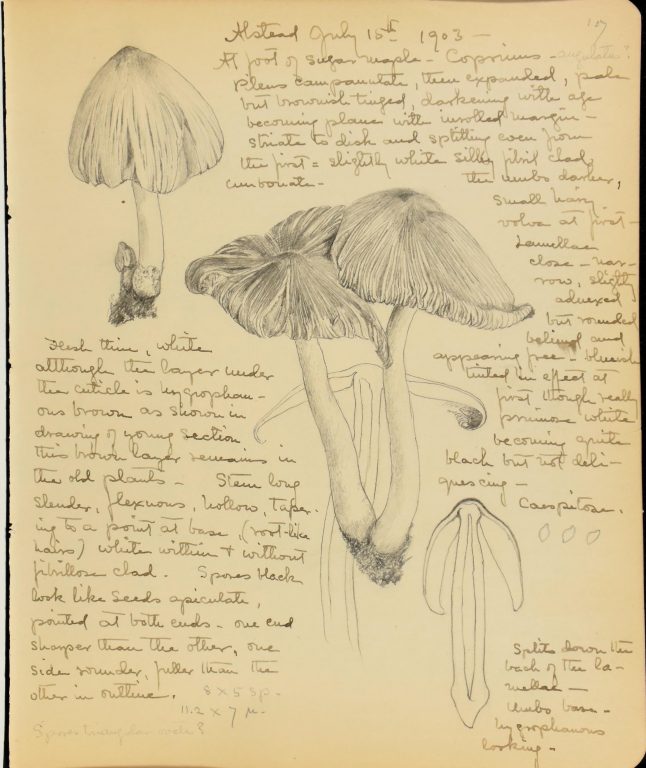 107
Alstead July 15th 1903 —
At foot of sugar maple — Coprinus — angulatus?
Pileus campanulate, then expanded, pale
but brownish tinged, darkening with age
becoming plane with inrolled margin —
striate to disk and splitting even from
the first = slightly white silky fibril clad,
umbonate — the umbo darker,
small hairy
volva at first —
Lamellae
close — nar-
row, slightly
adnexed
but rounded
behind and
appearing free — bluish
tinted in effect at
first though really
pruinose white
becoming quite
black but not deli-
quescing —
Caespitose.
Flesh thin, white
although the layer under
the cuticle is hygrophan-
ous brown as shown in
drawing of young section
this brown layer remains in
the old plants — Stem long
slender, flexuous, hollow, taper-
ing to a point at base, (root-like
hairs) white within + without
fibrillose clad. Spores black
look like seeds apiculate,
pointed at both ends — one end
sharper than the other, one
side rounder, fuller than the
other in outline. 8 x 5 sp —
11.2 x 7 µ —
Spores triangular ovate?
Splits down the
back of the la-
mellae —
Umbo base —
hygrophanous
looking —